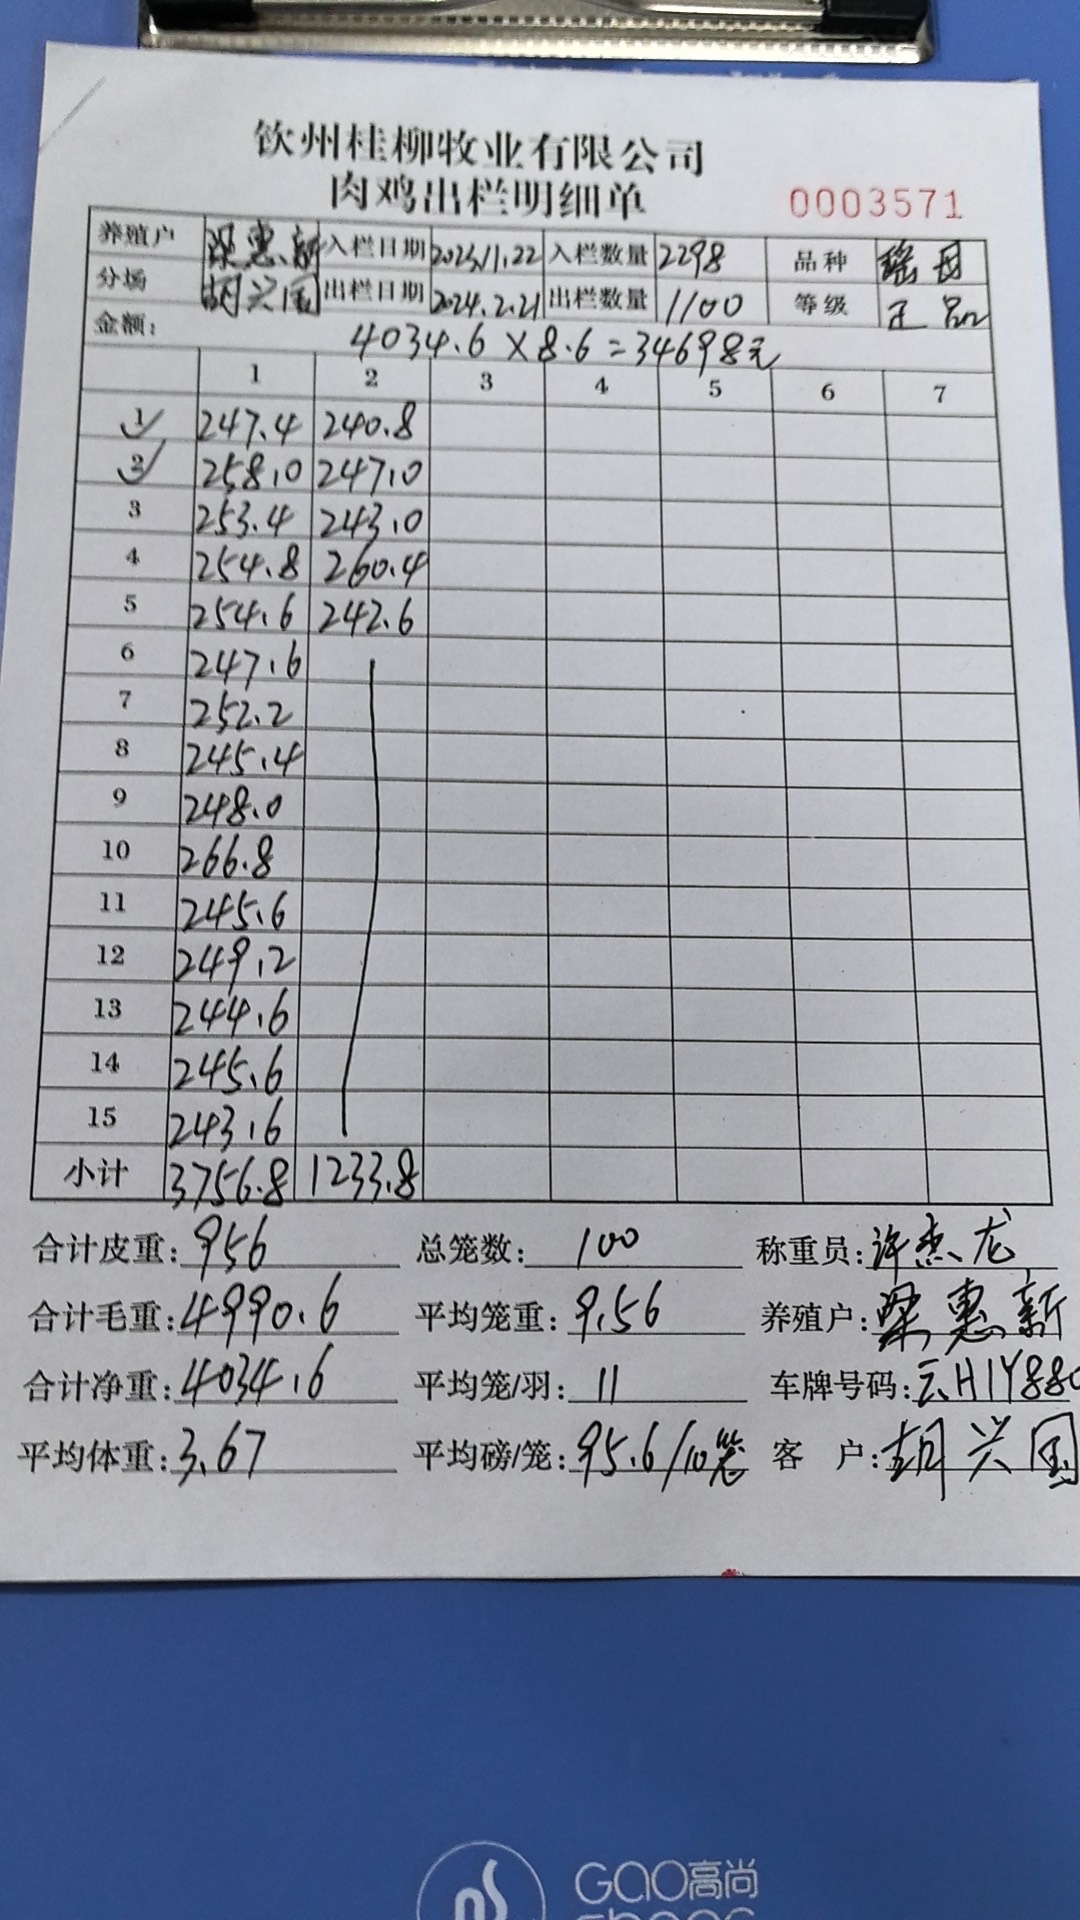 钦州桂柳牧业有限公司
肉鸡出栏明细单 0003571
养殖户 梁惠新 入栏日期 2023.11.22 入栏数量 2298 品种 瑶母
分场 胡兴国 出栏日期 2024.2.21 出栏数量 1100 等级 正品
金额: 4034.6×8.6=34698元
1 2 3 4 5 6 7
1 247.4 240.8
2 258.0 247.0
3 253.4 243.0
4 254.8 260.4
5 254.6 242.6
6 247.6
7 252.2
8 245.4
9 248.0
10 266.8
11 245.6
12 249.2
13 244.6
14 245.6
15 243.6
小计 3756.8 1233.8
合计皮重: 956 总笼数: 100 称重员: 许杰龙
合计毛重: 4990.6 平均笼重: 9.56 养殖户: 梁惠新
合计净重: 4034.6 平均笼/羽: 11 车牌号码: 云H1Y880
平均体重: 3.67 平均磅/笼: 95.6/10笼 客户: 胡兴国
GAO高尚